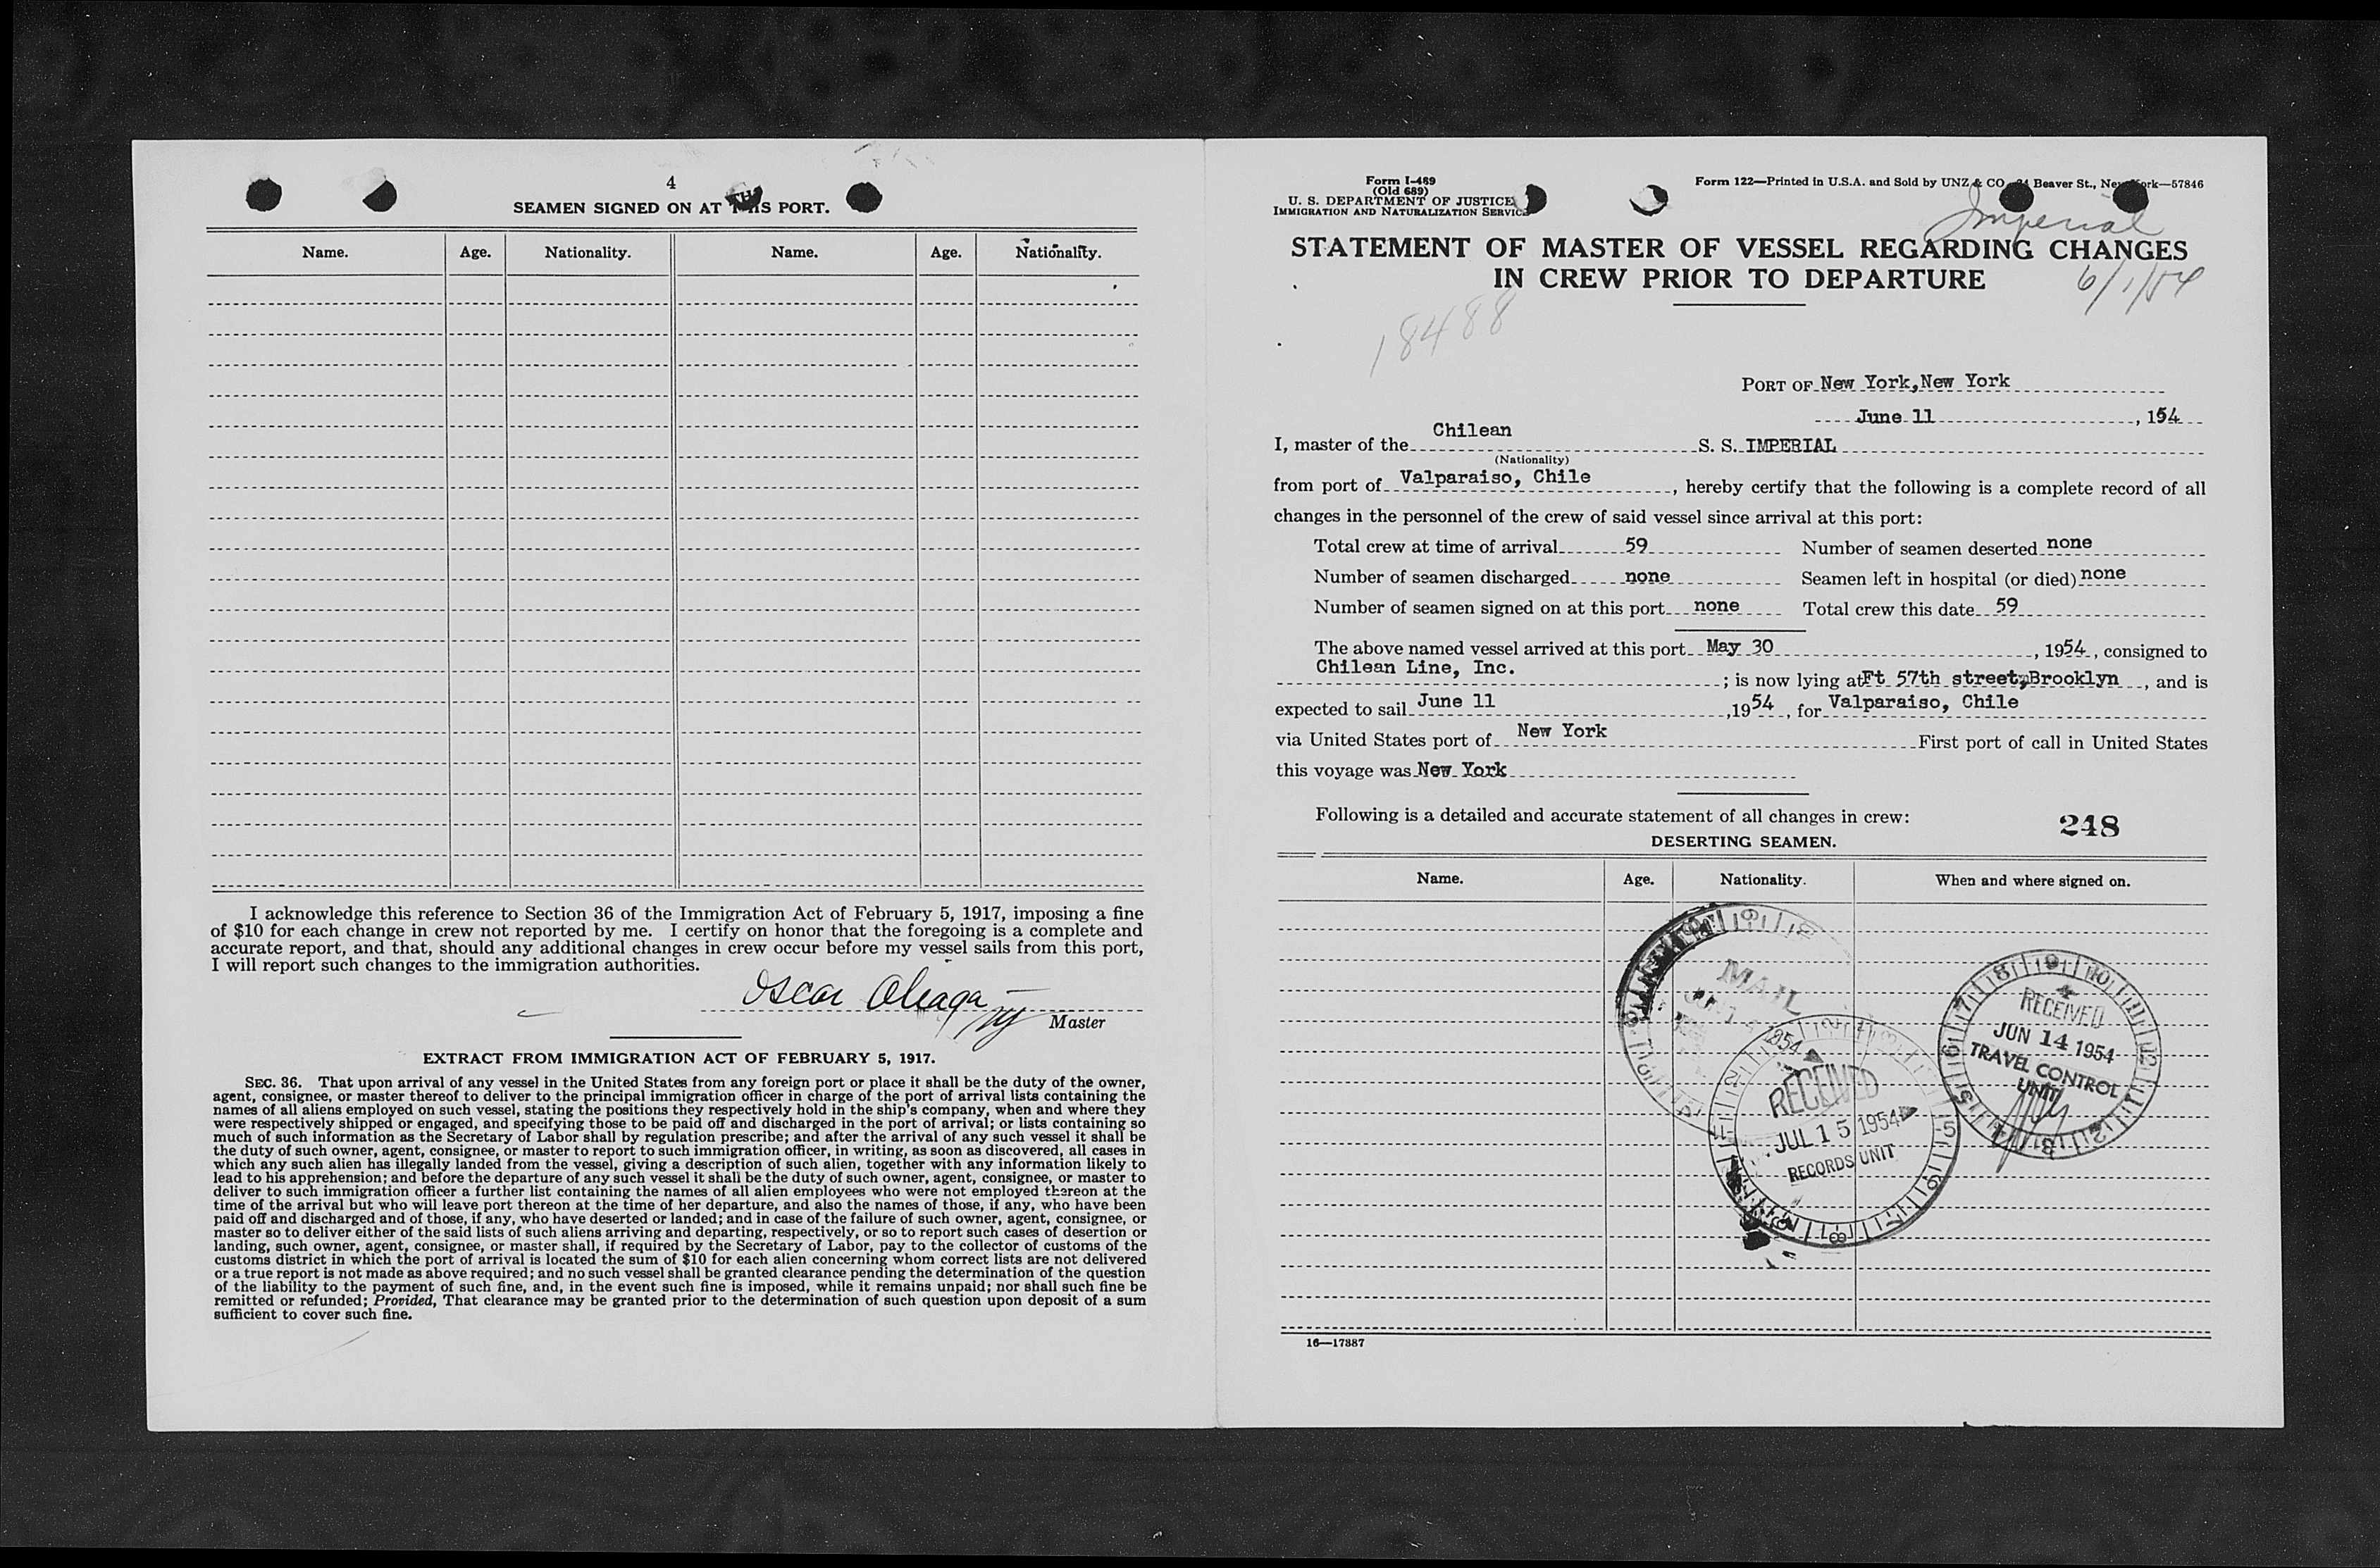 4
SEAMEN SIGNED ON AT THIS PORT.
Name. Age. Nationality. Name. Age. Nationality.
I acknowledge this reference to Section 36 of the Immigration Act of February 5, 1917, imposing a fine
of $10 for each change in crew not reported by me. I certify on honor that the foregoing is a complete and
accurate report, and that, should any additional changes in crew occur before my vessel sails from this port,
I will report such changes to the immigration authorities.
Oscar Aliaga
Master
EXTRACT FROM IMMIGRATION ACT OF FEBRUARY 5, 1917.
SEC. 36. That upon arrival of any vessel in the United States from any foreign port or place it shall be the duty of the owner,
agent, consignee, or master thereof to deliver to the principal immigration officer in charge of the port of arrival lists containing the
names of all aliens employed on such vessel, stating the positions they respectively hold in the ship's company, when and where they
were respectively shipped or engaged, and specifying those to be paid off and discharged in the port of arrival; or lists containing so
much of such information as the Secretary of Labor shall by regulation prescribe; and after the arrival of any such vessel it shall be
the duty of such owner, agent, consignee, or master to report to such immigration officer, in writing, as soon as discovered, all cases in
which any such alien has illegally landed from the vessel, giving a description of such alien, together with any information likely to
lead to his apprehension; and before the departure of any such vessel it shall be the duty of such owner, agent, consignee, or master to
deliver to such immigration officer a further list containing the names of all alien employees who were not employed thereon at the
time of the arrival but who will leave port thereon at the time of her departure, and also the names of those, if any, who have been
paid off and discharged and of those, if any, who have deserted or landed; and in case of the failure of such owner, agent, consignee, or
master so to deliver either of the said lists of such aliens arriving and departing, respectively, or so to report such cases of desertion or
landing, such owner, agent, consignee, or master shall, if required by the Secretary of Labor, pay to the collector of customs of the
customs district in which the port of arrival is located the sum of $10 for each alien concerning whom correct lists are not delivered
or a true report is not made as above required; and no such vessel shall be granted clearance pending the determination of the question
of the liability to the payment of such fine, and, in the event such fine is imposed, while it remains unpaid; nor shall such fine be
remitted or refunded; Provided, That clearance may be granted prior to the determination of such question upon deposit of a sum
sufficient to cover such fine.
Form I-489
(Old 689)
U. S. DEPARTMENT OF JUSTICE
IMMIGRATION AND NATURALIZATION SERVICE
Form 122—Printed in U.S.A. and Sold by UNZ & CO., 24 Beaver St., New York—57846
Imperial
STATEMENT OF MASTER OF VESSEL REGARDING CHANGES
IN CREW PRIOR TO DEPARTURE
6/1/54
18488
PORT OF New York, New York
June 11, 154
I, master of the Chilean S. S. IMPERIAL
(Nationality)
from port of Valparaiso, Chile, hereby certify that the following is a complete record of all
changes in the personnel of the crew of said vessel since arrival at this port:
Total crew at time of arrival 59 Number of seamen deserted none
Number of seamen discharged none Seamen left in hospital (or died) none
Number of seamen signed on at this port none Total crew this date 59
The above named vessel arrived at this port May 30, 1954, consigned to
Chilean Line, Inc.; is now lying at Ft 57th street, Brooklyn, and is
expected to sail June 11, 1954, for Valparaiso, Chile
via United States port of New York First port of call in United States
this voyage was New York
Following is a detailed and accurate statement of all changes in crew:
248
DESERTING SEAMEN.
Name. Age. Nationality. When and where signed on.
MAIL
1954
RECEIVED
JUL 15 1954
RECORDS UNIT
RECEIVED
JUN 14 1954
TRAVEL CONTROL
UNIT
16—17887